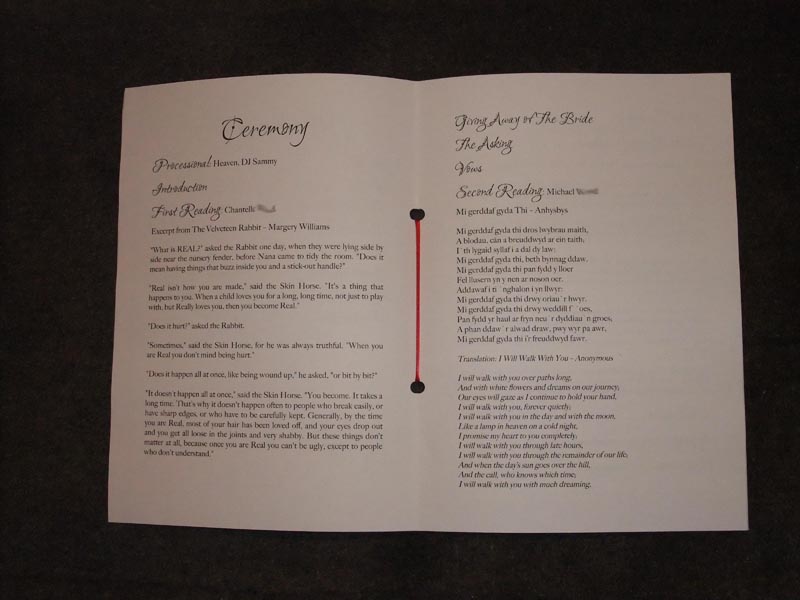 Ceremony
Processional: Heaven, DJ Sammy
Introduction
First Reading: Chantelle
Excerpt from The Velveteen Rabbit - Margery Williams
"What is REAL?" asked the Rabbit one day, when they were lying side by
side near the nursery fender, before Nana came to tidy the room. "Does it
mean having things that buzz inside you and a stick-out handle?"
"Real isn't how you are made," said the Skin Horse. "It's a thing that
happens to you. When a child loves you for a long, long time, not just to play
with, but Really loves you, then you become Real."
"Does it hurt?" asked the Rabbit.
"Sometimes," said the Skin Horse, for he was always truthful. "When you
are Real you don't mind being hurt."
"Does it happen all at once, like being wound up," he asked, "or bit by bit?"
"It doesn't happen all at once," said the Skin Horse. "You become. It takes a
long time. That's why it doesn't happen often to people who break easily, or
have sharp edges, or who have to be carefully kept. Generally, by the time
you are Real, most of your hair has been loved off, and your eyes drop out
and you get all loose in the joints and very shabby. But these things don't
matter at all, because once you are Real you can't be ugly, except to people
who don't understand."
Giving Away of The Bride
The Asking
Vows
Second Reading: Michael
Mi gerddaf gyda Thi - Anhysbys
Mi gerddaf gyda thi dros lwybrau maith,
A blodau, cân a breuddwyd ar ein taith;
I`th lygaid syllaf i a dal dy law:
Mi gerddaf gyda thi, beth bynnag ddaw.
Mi gerddaf gyda thi pan fydd y lloer
Fel llusern yn y nen ar noson oer.
Addawaf i ti `nghalon i yn llwyr:
Mi gerddaf gyda thi drwy oriau`r hwyr.
Mi gerddaf gyda thi drwy weddill f`oes,
Pan fydd yr haul ar fryn neu`r dyddiau`n groes,
A phan ddaw`r alwad draw, pwy wyr pa awr,
Mi gerddaf gyda thi i'r freuddwyd fawr.
Translation: I Will Walk With You - Anonymous
I will walk with you over paths long,
And with white flowers and dreams on our journey,
Our eyes will gaze as I continue to hold your hand,
I will walk with you, forever quietly;
I will walk with you in the day and with the moon,
Like a lamp in heaven on a cold night,
I promise my heart to you completely;
I will walk with you through late hours,
I will walk with you through the remainder of our life;
And when the day's sun goes over the hill,
And the call, who knows which time,
I will walk with you with much dreaming.